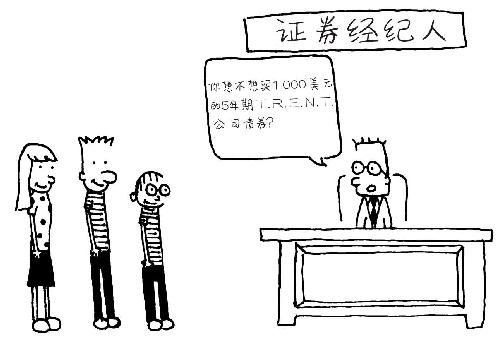 证券经纪人
你想不想买1000美元
的5年期T.R.E.N.T.
公司债券?